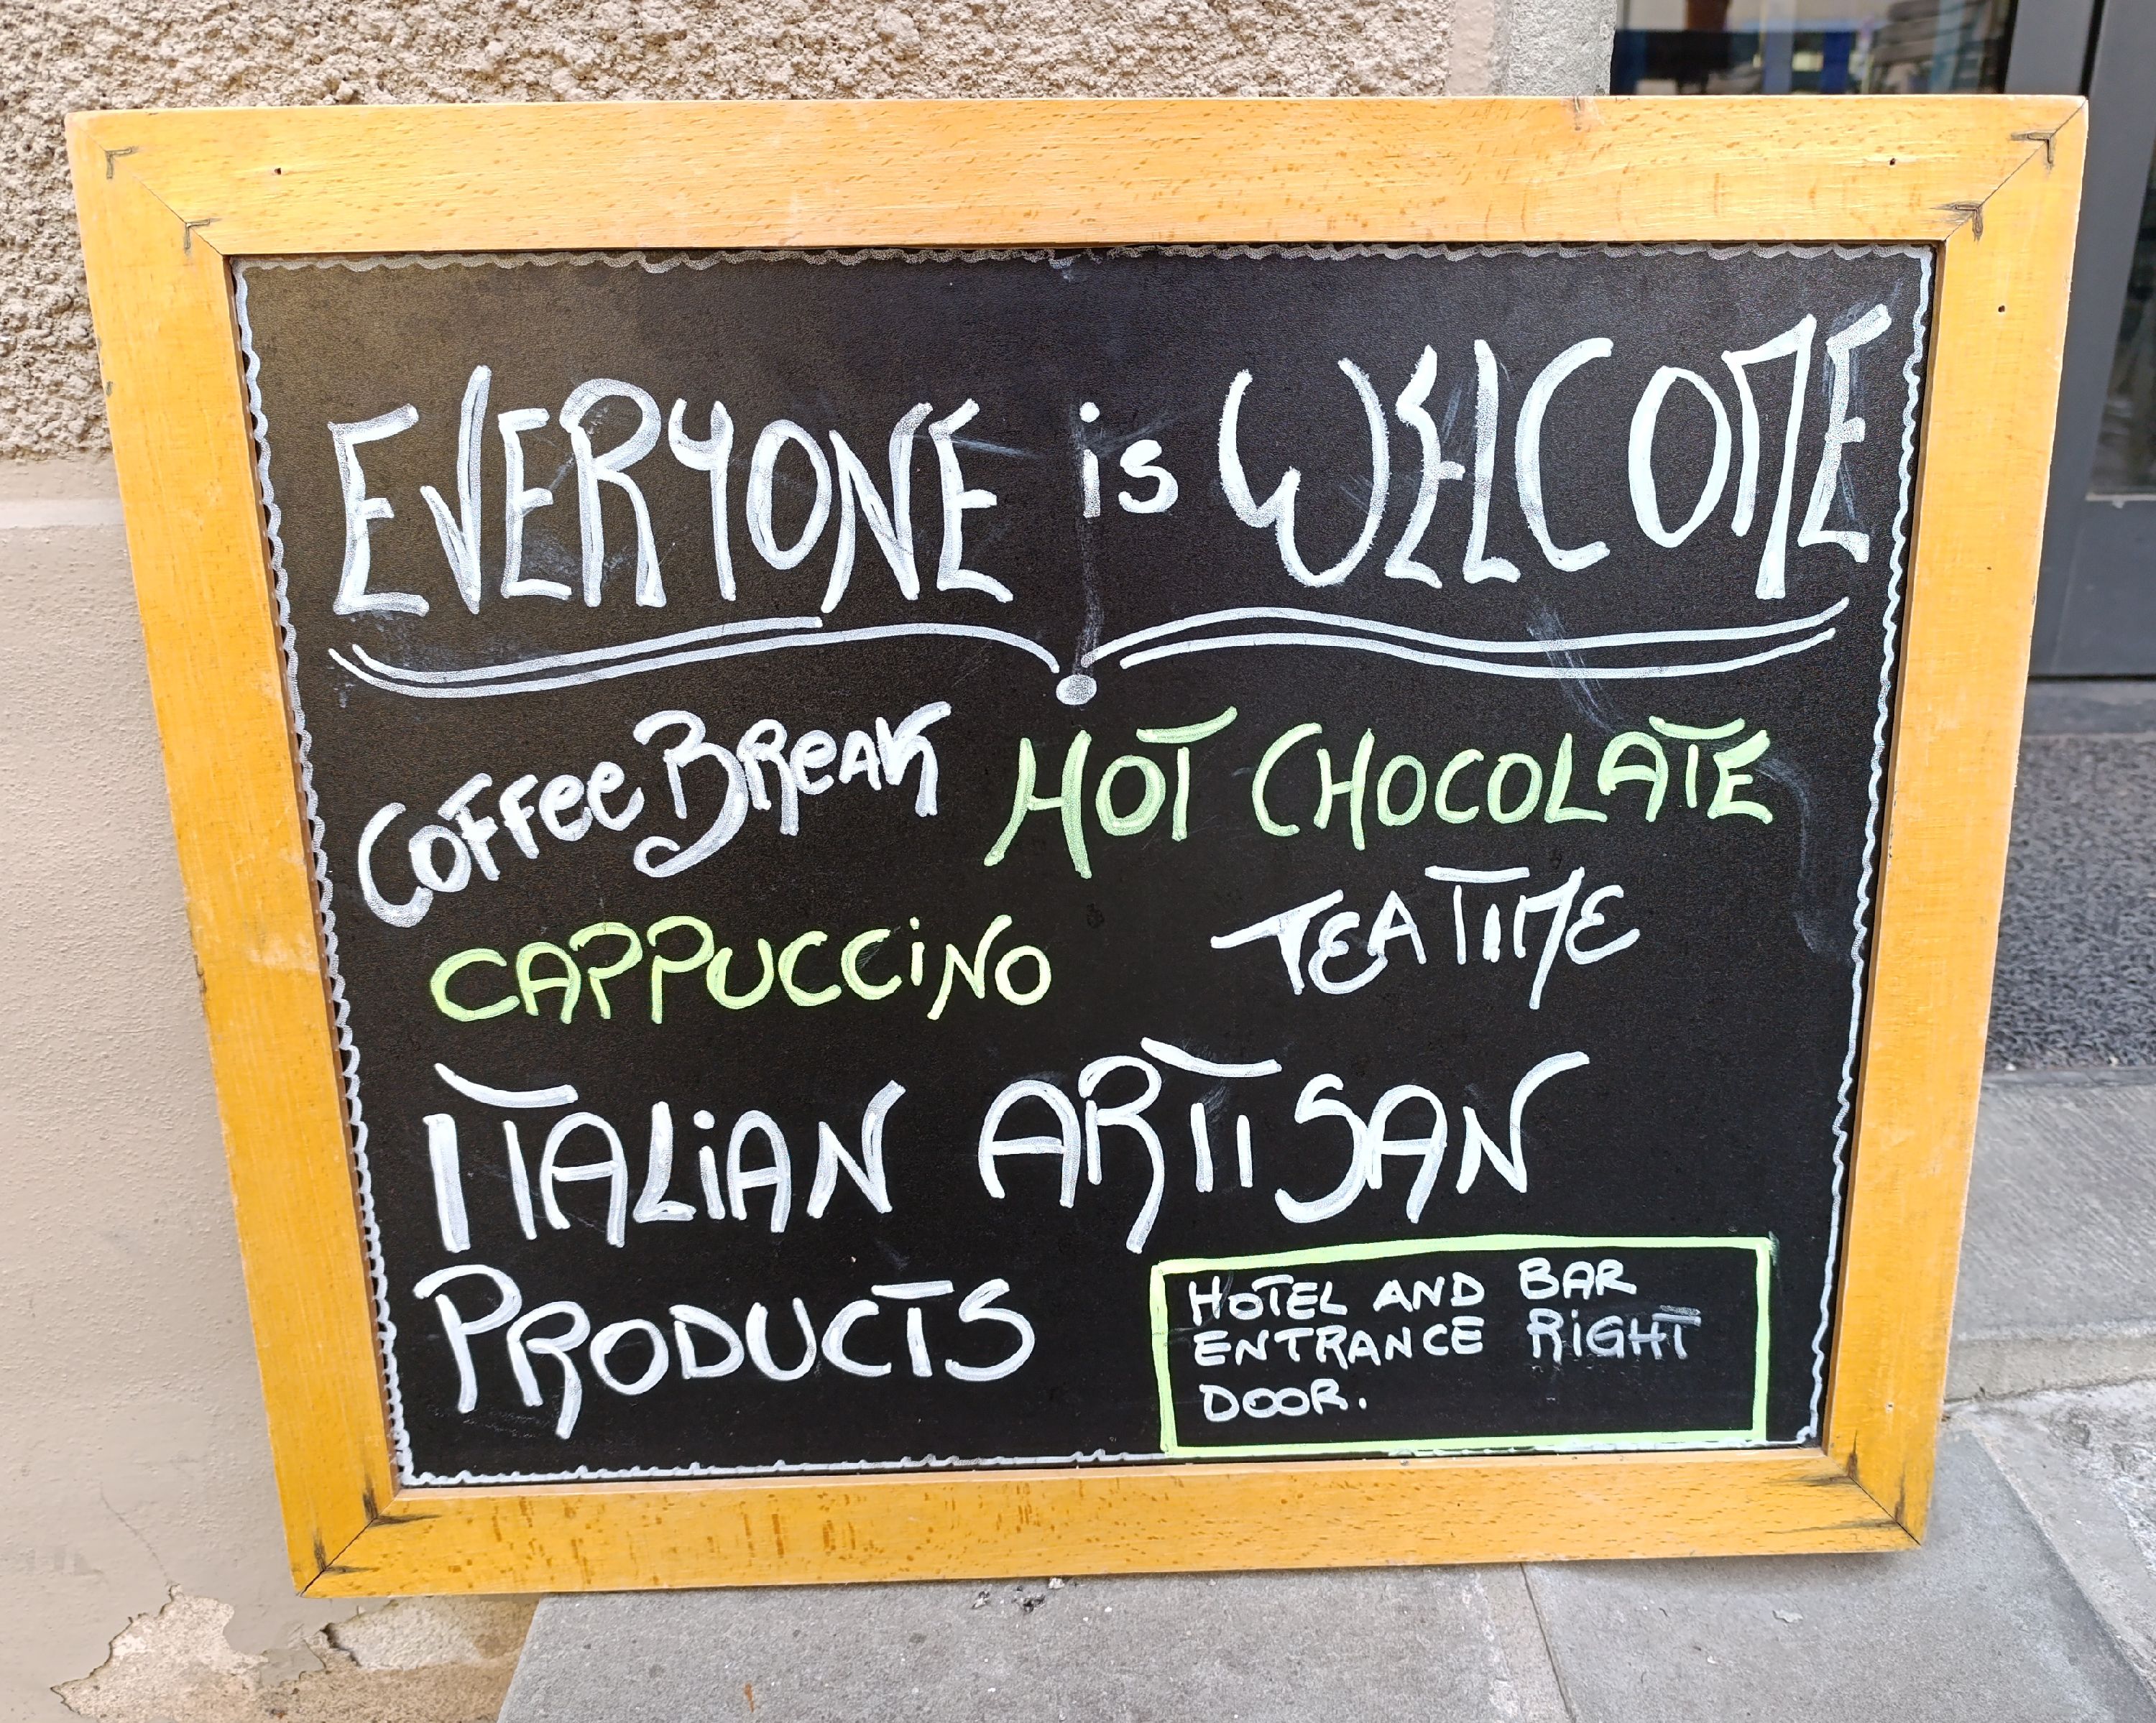 EVERYONE is WELCOME
Coffee Break HOT CHOCOLATE
CAPPUCCiNO TEA TIME
ITALiAN ARTiSAN
PRODUCTS
HOTEL AND BAR
ENTRANCE RiGHT
DOOR.